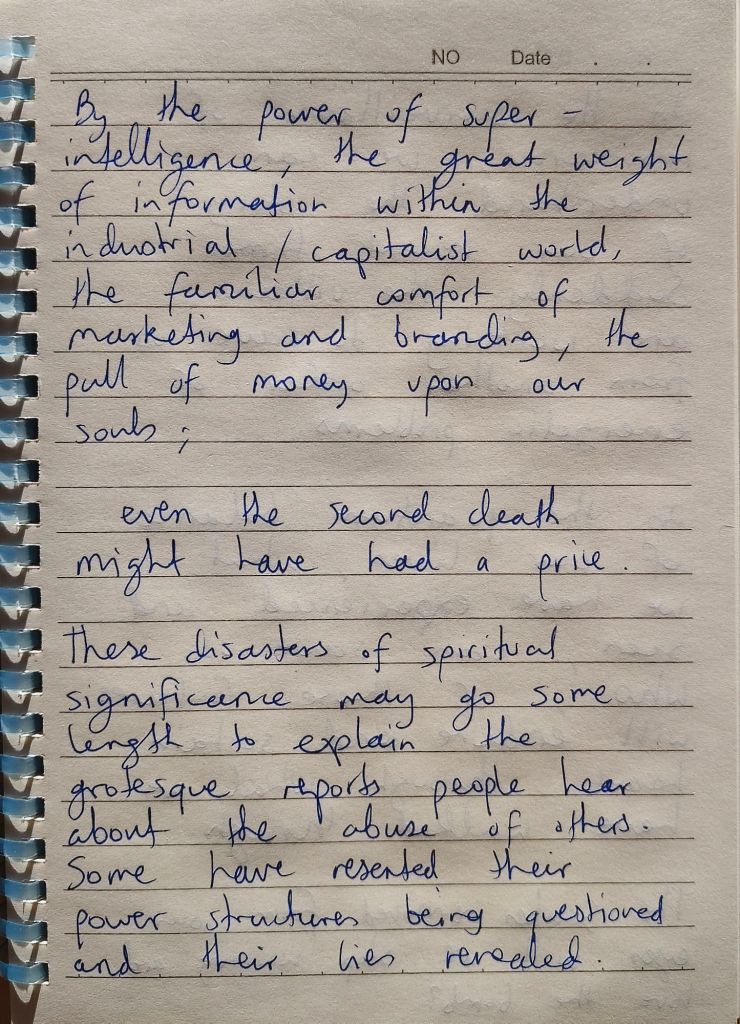 NO Date . .
By the power of super -
intelligence, the great weight
of information within the
industrial / capitalist world,
the familiar comfort of
marketing and branding, the
pull of money upon our
souls ;
even the second death
might have had a price.
These disasters of spiritual
significance may go some
length to explain the
grotesque reports people hear
about the abuse of others.
Some have resented their
power structures being questioned
and their lies revealed.